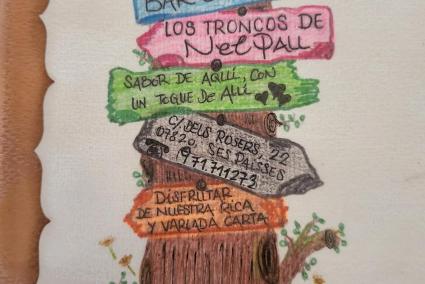 BAR
LOS TRONCOS DE
N'el PAU
SABOR DE AQUÍ, CON
UN TOQUE DE ALLÍ
C/DELS ROSERS, 22
07820, SES PAÏSSES
(971711273
DISFRUTAR
DE NUESTRA RICA
Y VARIADA CARTA